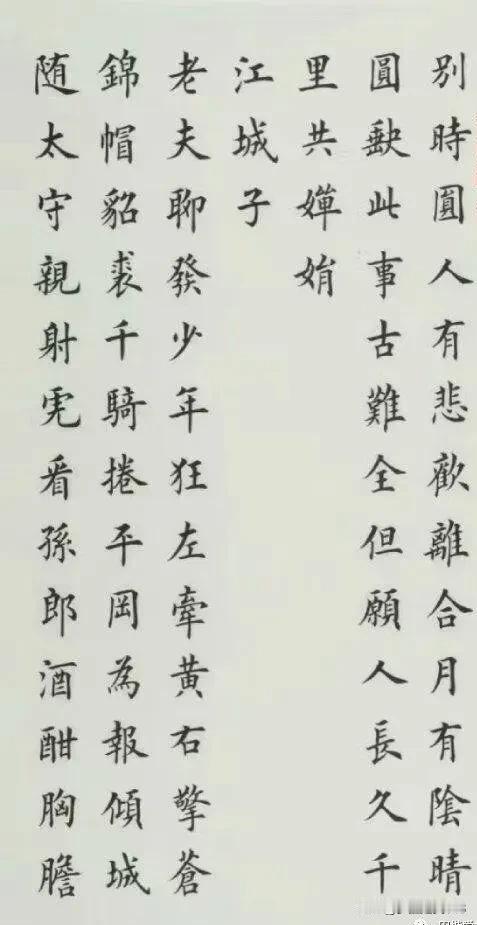 別時圓人有悲歡離合月有陰晴
圓缺此事古難全但願人長久千
里共嬋娟
江城子
老夫聊發少年狂左牽黃右擎蒼
錦帽貂裘千騎捲平岡為報傾城
随太守親射虎看孫郎酒酣胸膽